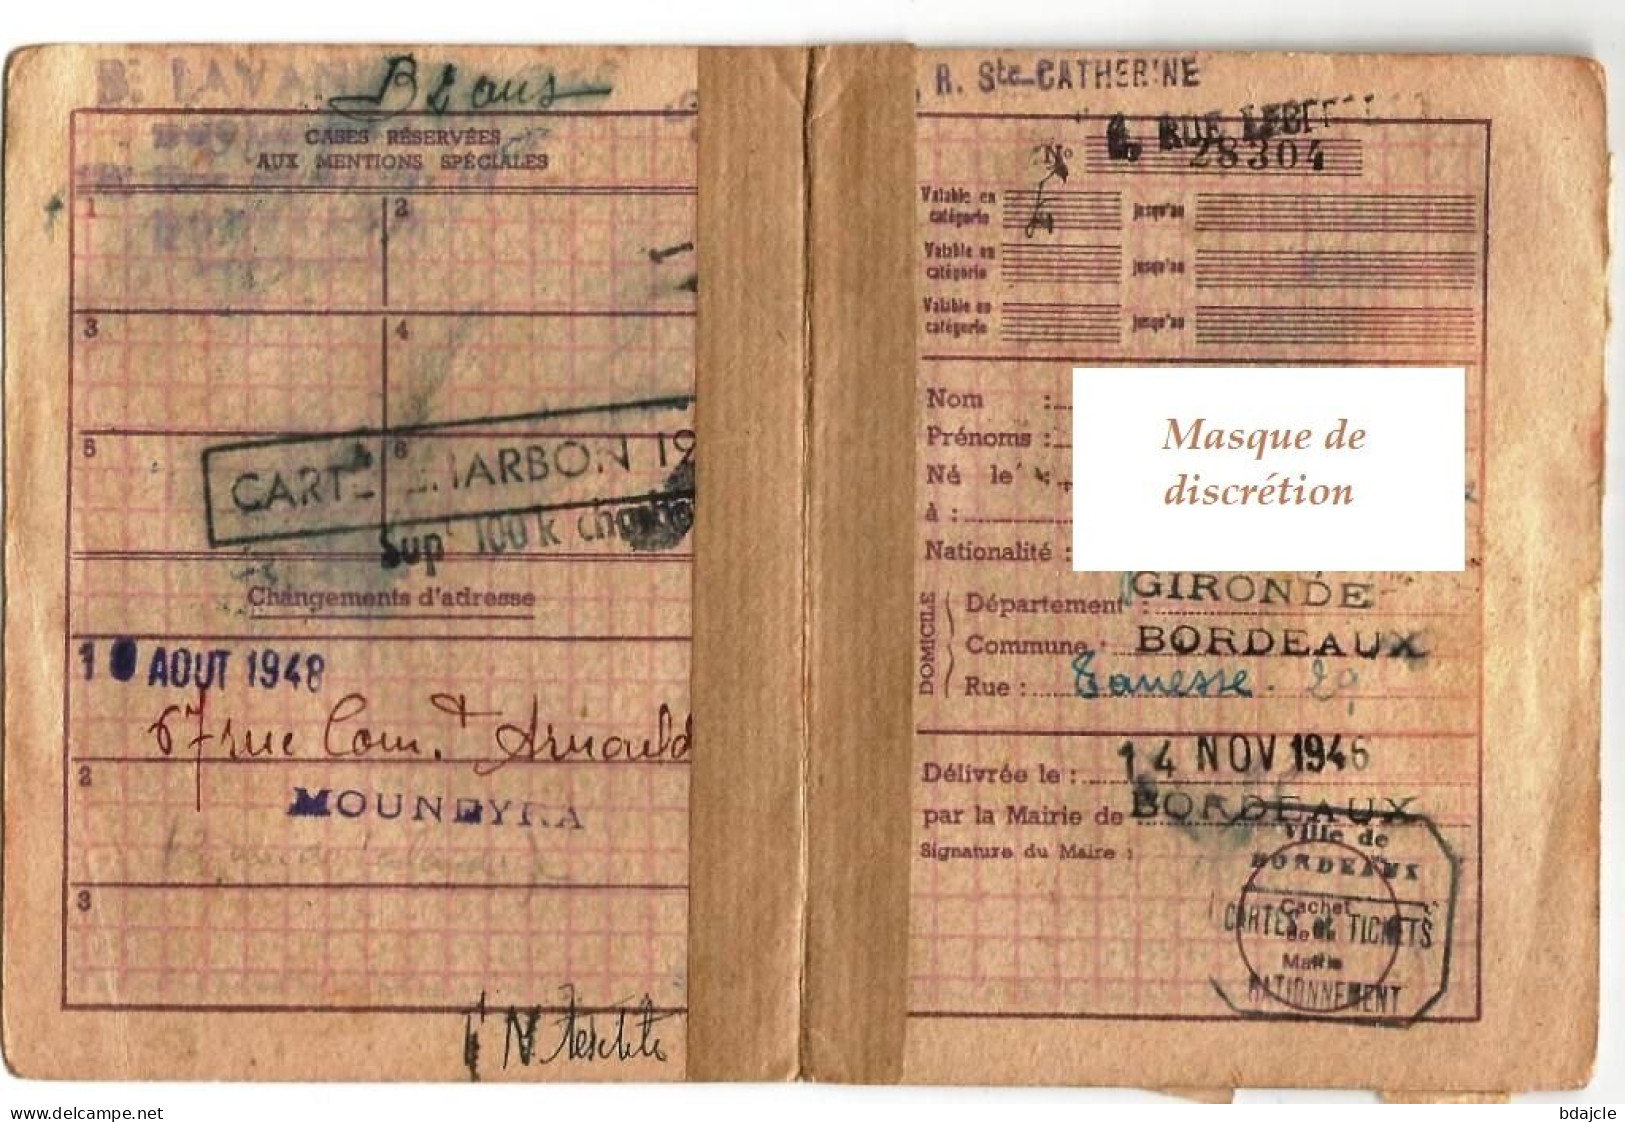 B. LAVAN
B 2 ans
CASES RÉSERVÉES
AUX MENTIONS SPÉCIALES
1
2
3
4
5
6
CARTE CHARBON 19
Supt 100 k
Changements d'adresse
AOUT 1948
67 rue Com.t Arnould
2
MOUNEYRA
3
, R. Ste-CATHERINE
RUE
No 28304
Valable en
catégorie
jusqu'au
Valable en
catégorie
jusqu'au
Valable en
catégorie
jusqu'au
Nom :
Prénoms :
Né le
à :
Nationalité :
Masque de
discrétion
DOMICILE
Département : GIRONDE
Commune : BORDEAUX
Rue : Tanesse. 29
Délivrée le : 14 NOV 1946
par la Mairie de BORDEAUX
Signature du Maire :
Ville de
BORDEAUX
Cachet
de la
Mairie
CARTES et TICKETS
RATIONNEMENT
www.delcampe.net
bdajcle